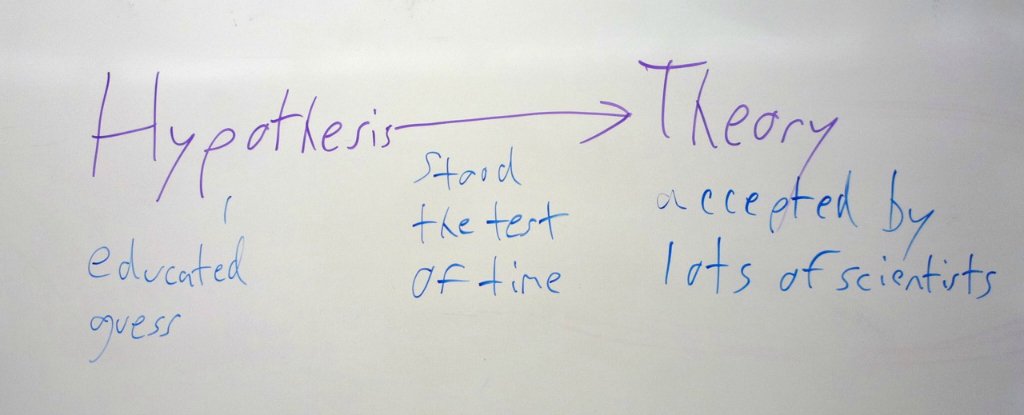 Hypothesis → Theory
educated
guess
stood
the test
of time
accepted by
lots of scientists